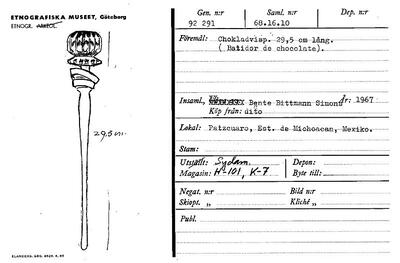 ETNOGRAFISKA MUSEET, Göteborg
ETNOGR. ARKEOL.
29,5 cm.
ELANDERS, GBG. 4929. 4. 65
Gen. n:r Saml. n:r Dep. n:r
92 291 68.16.10
Föremål: Chokladvisp. 29,5 cm lång.
( Batidor de chocolate).
Insaml. Bente Bittmann Simons År: 1967
Köp från: dito
Lokal: Patzcuaro, Est. de Michoacan, Mexiko.
Stam:
Utställt: Sydam. Depon:
Magasin: H-101, K-7 Byte till:
Negat. n:r Bild n:r
Skiopt. „ Kliché „
Publ.